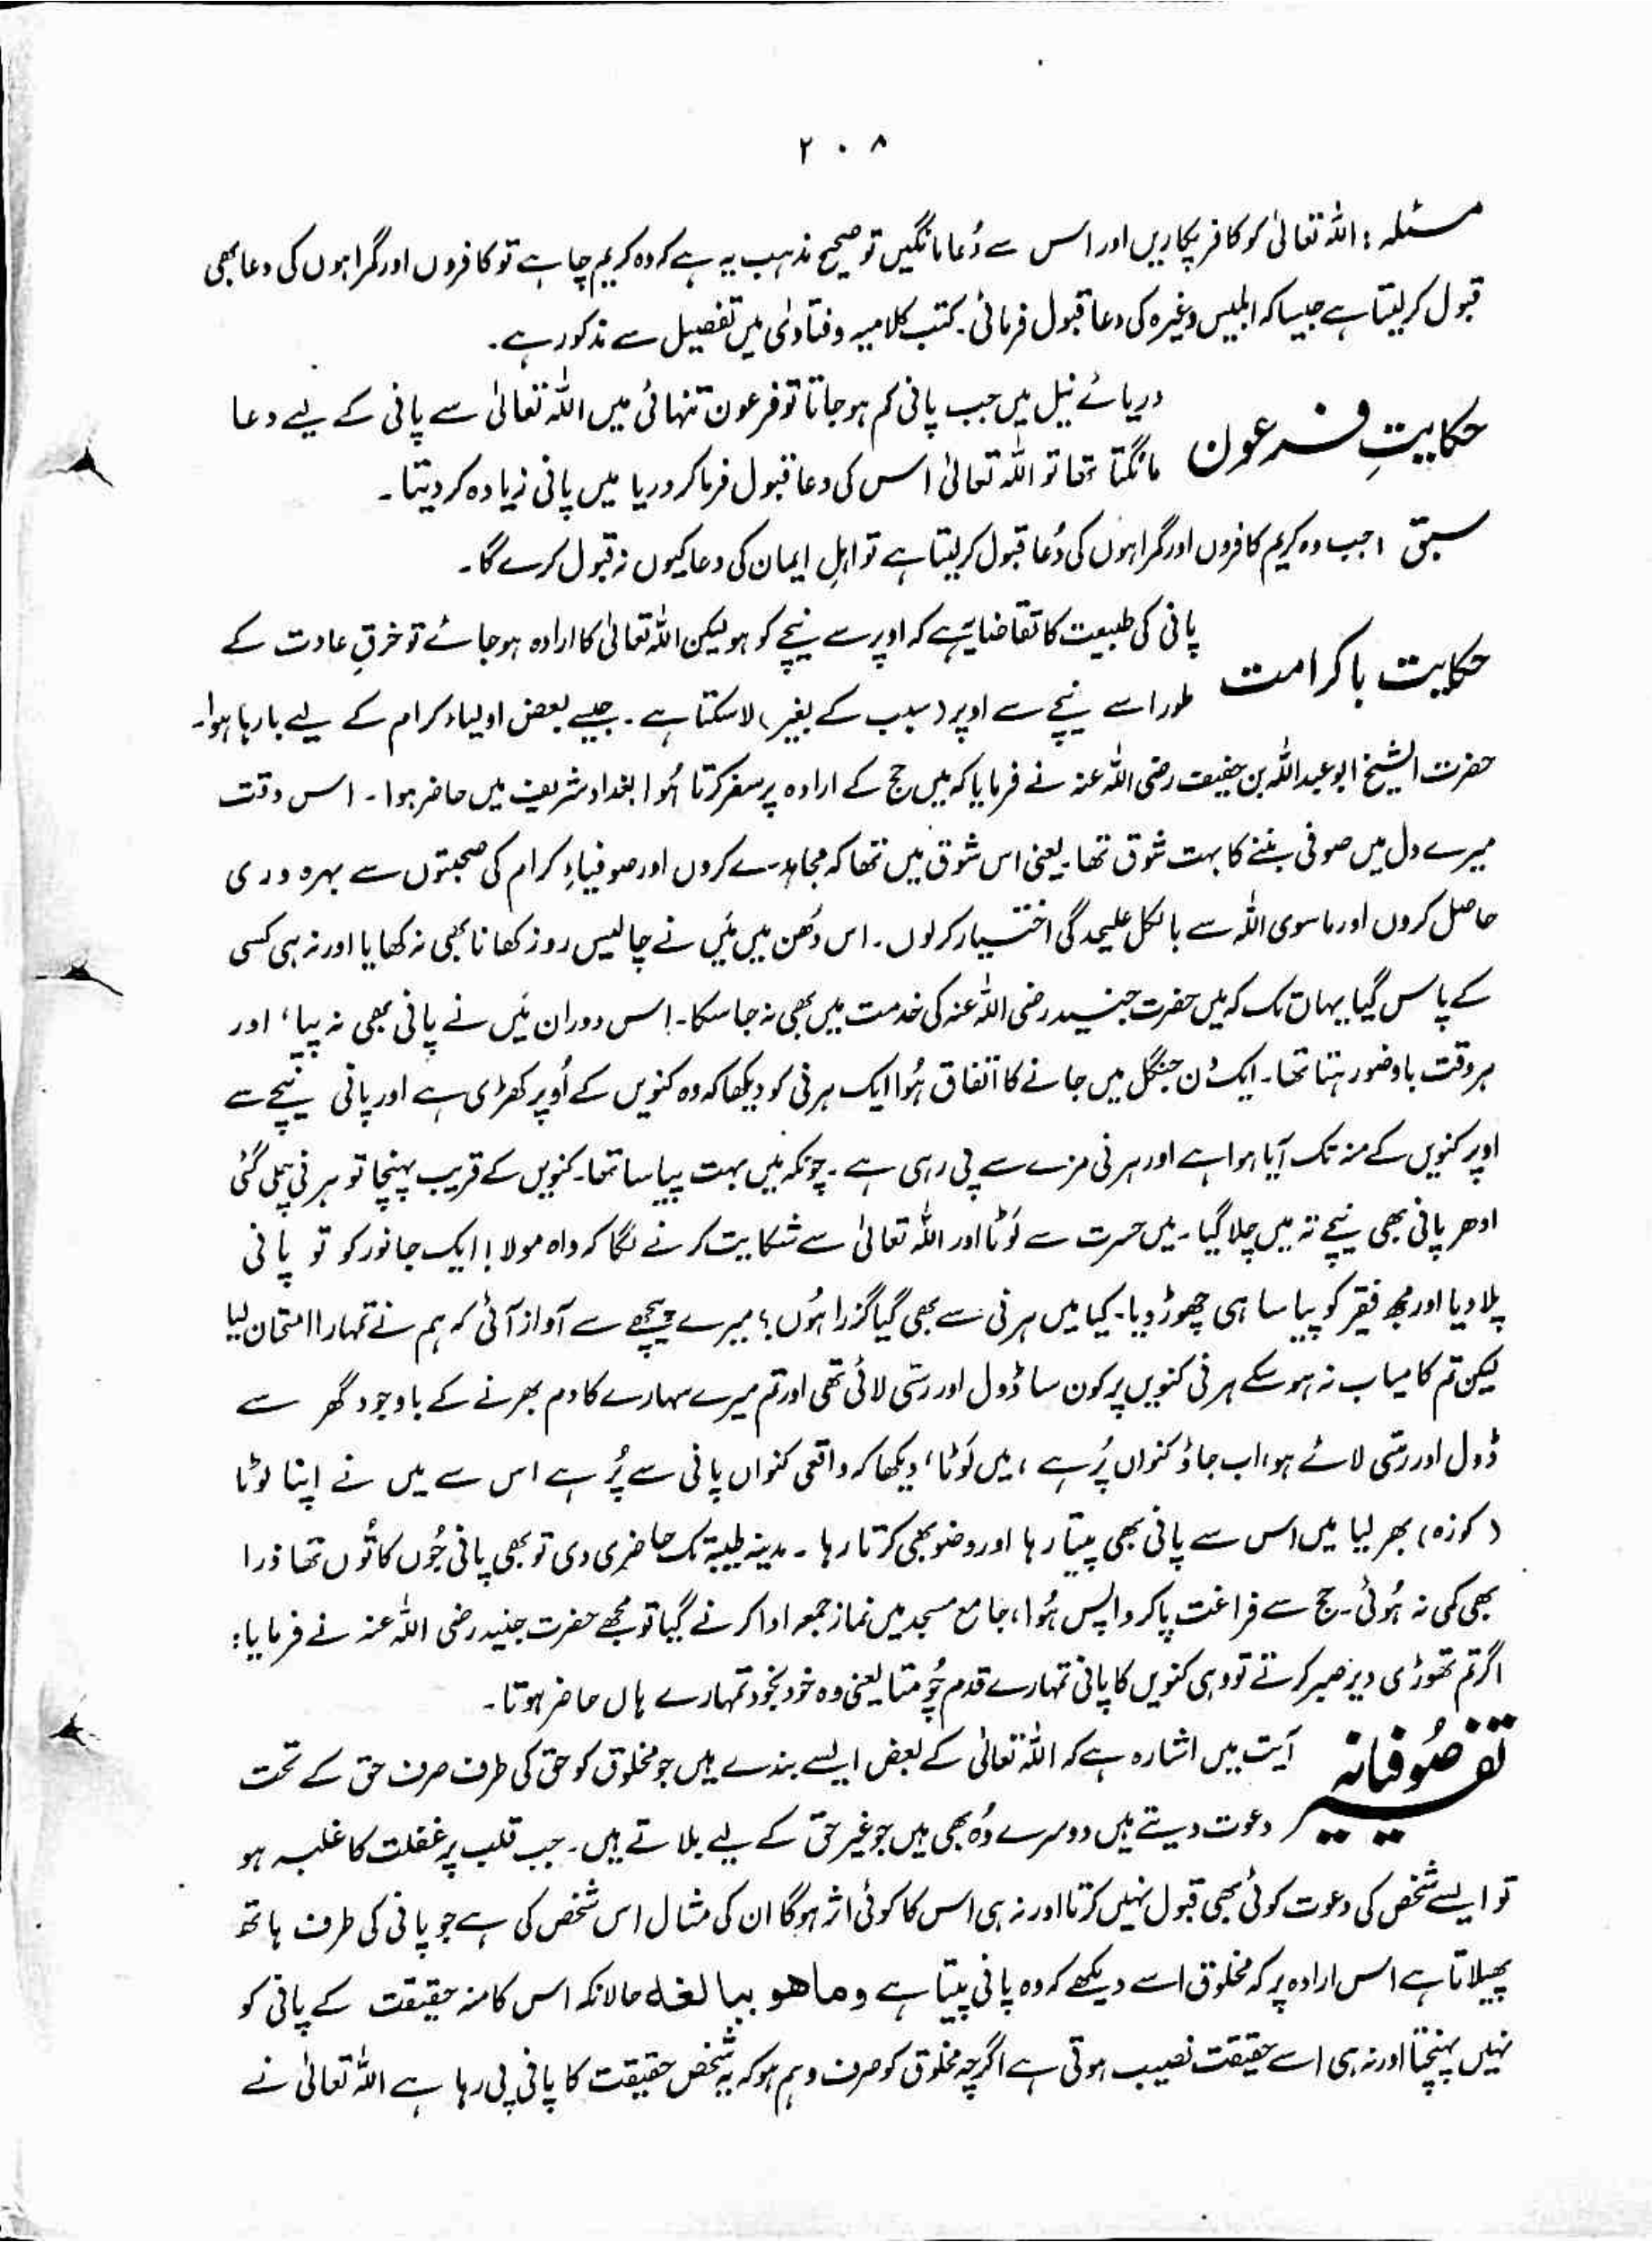 ۲۰۸
مسئلہ : اللہ تعالیٰ کو کافر پکاریں اور اس سے دُعا مانگیں تو صحیح مذہب یہ ہے کہ وہ کریم چاہے تو کافروں اور گمراہوں کی دعا بھی
قبول کر لیتا ہے جیسا کہ ابلیس وغیرہ کی دعا قبول فرمائی۔ کتب کلامیہ و فتاویٰ میں تفصیل سے مذکور ہے۔
حکایتِ فرعون دریائے نیل میں جب پانی کم ہو جاتا تو فرعون تنہائی میں اللہ تعالیٰ سے پانی کے لیے دعا
مانگتا تھا تو اللہ تعالیٰ اس کی دعا قبول فرما کر دریا میں پانی زیادہ کر دیتا۔
سبق : جب وہ کریم کافروں اور گمراہوں کی دُعا قبول کر لیتا ہے تو اہلِ ایمان کی دعا کیوں نہ قبول کرے گا۔
حکایت با کرامت پانی کی طبیعت کا تقاضا یہ ہے کہ اوپر سے نیچے کو ہو لیکن اللہ تعالیٰ کا ارادہ ہو جائے تو خرقِ عادت کے
طور اسے نیچے سے اوپر (سبب کے بغیر) لا سکتا ہے۔ جیسے بعض اولیاء کرام کے لیے بارہا ہوا۔
حضرت الشیخ ابو عبداللہ بن خفیف رضی اللہ عنہ نے فرمایا کہ میں حج کے ارادہ پر سفر کرتا ہُوا بغداد شریف میں حاضر ہوا۔ اس وقت
میرے دل میں صوفی بننے کا بہت شوق تھا۔ یعنی اس شوق میں تھا کہ مجاہدے کروں اور صوفیاءِ کرام کی صحبتوں سے بہرہ وری
حاصل کروں اور ماسوی اللہ سے بالکل علیحدگی اختیار کر لوں۔ اس دُھن میں مَیں نے چالیس روز کھانا بھی نہ کھایا اور نہ ہی کسی
کے پاس گیا یہاں تک کہ میں حضرت جنید رضی اللہ عنہ کی خدمت میں بھی نہ جا سکا۔ اس دوران مَیں نے پانی بھی نہ پیا، اور
ہر وقت باوضو رہتا تھا۔ ایک دن جنگل میں جانے کا اتفاق ہُوا ایک ہرنی کو دیکھا کہ وہ کنویں کے اُوپر کھڑی ہے اور پانی نیچے سے
اوپر کنویں کے منہ تک آیا ہوا ہے اور ہرنی مزے سے پی رہی ہے۔ چونکہ میں بہت پیاسا تھا۔ کنویں کے قریب پہنچا تو ہرنی چلی گئی
ادھر پانی بھی نیچے تہ میں چلا گیا۔ میں حسرت سے لَوٹا اور اللہ تعالیٰ سے شکایت کرنے لگا کہ واہ مولا! ایک جانور کو تو پانی
پلا دیا اور مجھ فقیر کو پیاسا ہی چھوڑ دیا۔ کیا میں ہرنی سے بھی گیا گزرا ہُوں؟ میرے پیچھے سے آواز آئی کہ ہم نے تمہارا امتحان لیا
لیکن تم کامیاب نہ ہو سکے ہرنی کنویں پر کون سا ڈول اور رسّی لائی تھی اور تم میرے سہارے کا دم بھرنے کے باوجود گھر سے
ڈول اور رسّی لائے ہو، اب جاؤ کنواں پُر ہے، میں لَوٹا، دیکھا کہ واقعی کنواں پانی سے پُر ہے اس سے میں نے اپنا لوٹا
(کوزہ) بھر لیا میں اس سے پانی بھی پیتا رہا اور وضو بھی کرتا رہا۔ مدینہ طیبہ تک حاضری دی تو بھی پانی جُوں کا تُوں تھا ذرا
بھی کمی نہ ہُوئی۔ حج سے فراغت پا کر واپس ہُوا، جامع مسجد میں نماز جمعہ ادا کرنے گیا تو مجھے حضرت جنید رضی اللہ عنہ نے فرمایا:
اگر تم تھوڑی دیر صبر کرتے تو وہی کنویں کا پانی تمہارے قدم چُومتا یعنی وہ خود بخود تمہارے ہاں حاضر ہوتا۔
تفسیر صُوفیانہ آیت میں اشارہ ہے کہ اللہ تعالیٰ کے بعض ایسے بندے ہیں جو مخلوق کو حق کی طرف صرف حق کے تحت
دعوت دیتے ہیں دوسرے وُہ بھی ہیں جو غیر حق کے لیے بلاتے ہیں۔ جب قلب پر غفلت کا غلبہ ہو
تو ایسے شخص کی دعوت کوئی بھی قبول نہیں کرتا اور نہ ہی اس کا کوئی اثر ہوگا ان کی مثال اس شخص کی ہے جو پانی کی طرف ہاتھ
پھیلاتا ہے اس ارادہ پر کہ مخلوق اسے دیکھے کہ وہ پانی پیتا ہے وماھو ببالغہ حالانکہ اس کا منہ حقیقت کے پانی کو
نہیں پہنچتا اور نہ ہی اسے حقیقت نصیب ہوتی ہے اگرچہ مخلوق کو صرف وہم ہو کہ یہ شخص حقیقت کا پانی پی رہا ہے اللہ تعالیٰ نے